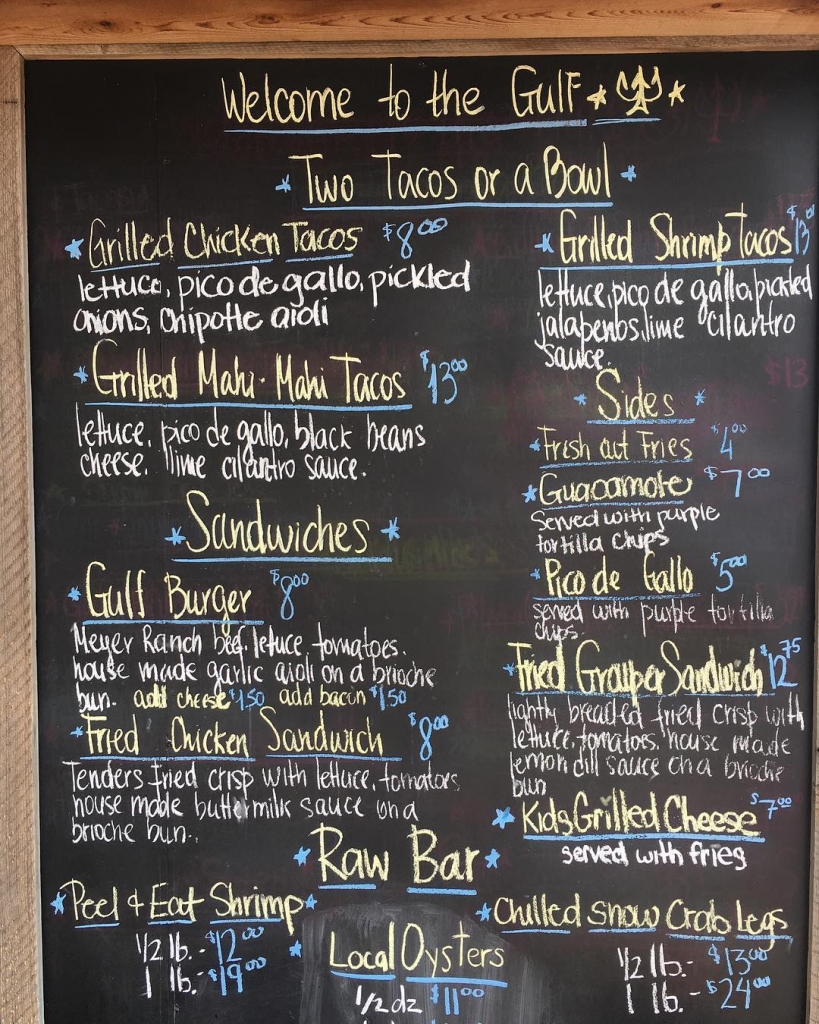 Welcome to the Gulf
Two Tacos or a Bowl
Grilled Chicken Tacos $8.00
lettuce, pico de gallo, pickled
onions, chipotle aioli
Grilled Mahi-Mahi Tacos $13.00
lettuce, pico de gallo, black beans
cheese, lime cilantro sauce.
Grilled Shrimp Tacos $13.00
lettuce, pico de gallo, pickled
jalapenos, lime cilantro
sauce.
Sides
Fresh cut Fries $4.00
Guacamole $7.00
Served with purple
tortilla chips
Pico de Gallo $5.00
served with purple tortilla
chips.
Sandwiches
Gulf Burger $8.00
Meyer Ranch beef, lettuce, tomatoes,
house made garlic aioli on a brioche
bun. add cheese $1.50 add bacon $1.50
Fried Chicken Sandwich $8.00
Tenders fried crisp with lettuce, tomatoes
house made buttermilk sauce on a
brioche bun.
Fried Grouper Sandwich $12.75
lightly breaded fried crisp with
lettuce, tomatoes, house made
lemon dill sauce on a brioche
bun
Kids Grilled Cheese $7.00
served with fries
Raw Bar
Peel & Eat Shrimp
1/2 lb. - $12.00
1 lb. - $19.00
Local Oysters
1/2 dz $11.00
Chilled Snow Crab Legs
1/2 lb. - $13.00
1 lb. - $24.00